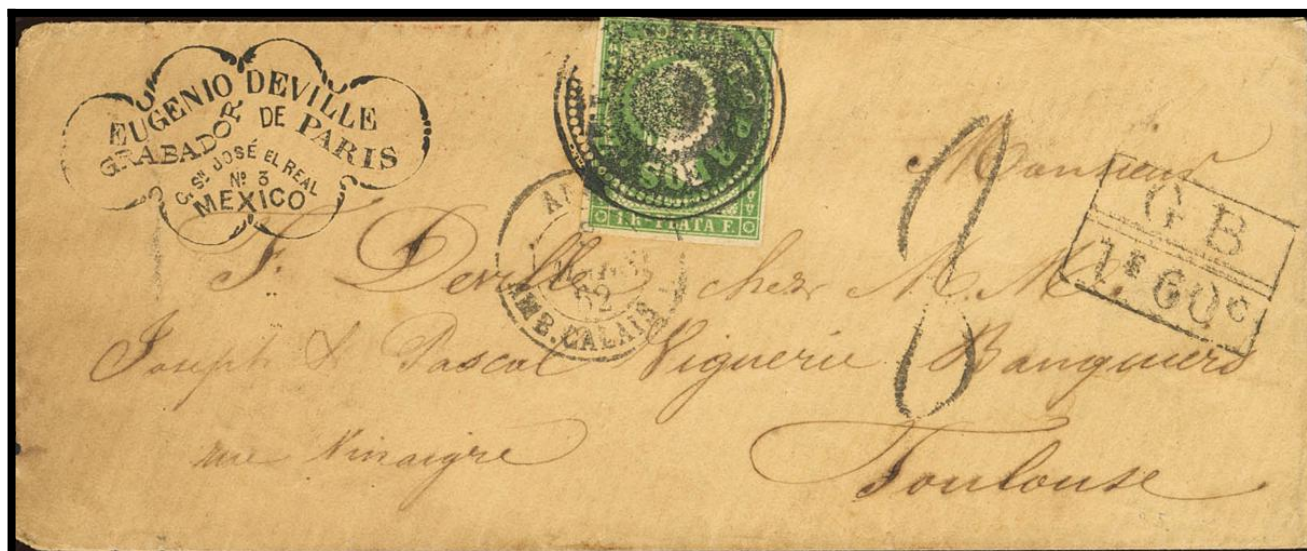 EUGENIO DEVILLE
GRABADOR DE PARIS
C. Sn JOSÉ EL REAL
No 3
MEXICO
1 R. PLATA F.
62
AMB. CALAIS
8
GB
1F60c
Monsieur
F. Deville chez M.M.
Joseph & Pascal Viguerie Banquiers
rue Vinaigre
Toulouse